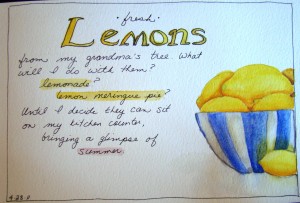 ·fresh·
Lemons
from my grandma's tree. What
will I do with them?
lemonade?
lemon meringue pie?
Until I decide they can sit
on my kitchen counter,
bringing a glimpse of
summer.
4-23-11